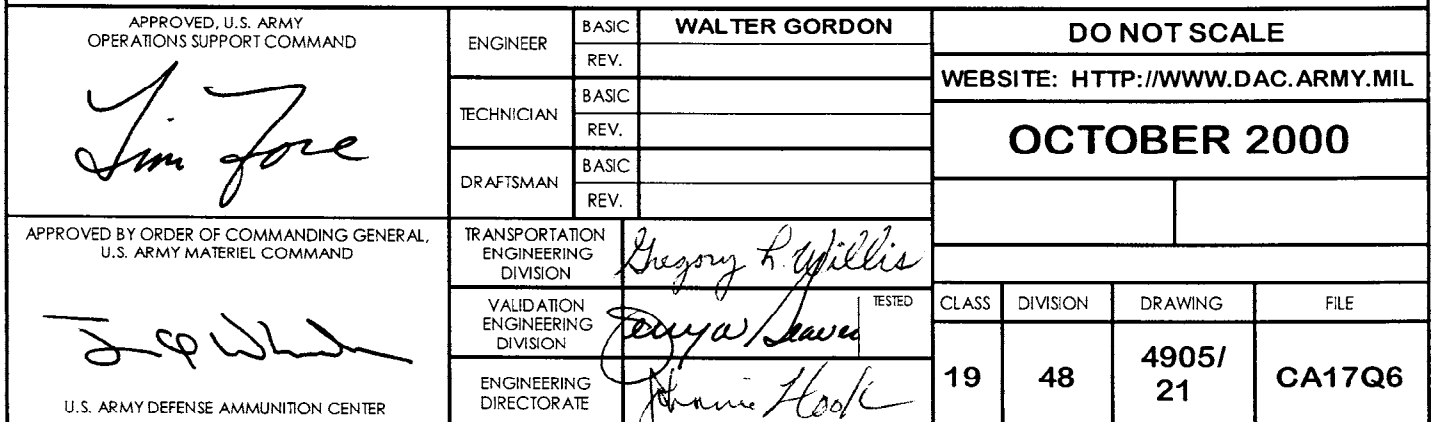 APPROVED, U.S. ARMY
OPERATIONS SUPPORT COMMAND
Tim Fore
APPROVED BY ORDER OF COMMANDING GENERAL,
U.S. ARMY MATERIEL COMMAND
U.S. ARMY DEFENSE AMMUNITION CENTER
ENGINEER
BASIC
WALTER GORDON
REV.
TECHNICIAN
BASIC
REV.
DRAFTSMAN
BASIC
REV.
TRANSPORTATION
ENGINEERING
DIVISION
Gregory L. Willis
VALIDATION
ENGINEERING
DIVISION
TESTED
ENGINEERING
DIRECTORATE
Hook
DO NOT SCALE
WEBSITE: HTTP://WWW.DAC.ARMY.MIL
OCTOBER 2000
CLASS DIVISION DRAWING FILE
19 48 4905/ CA17Q6
21